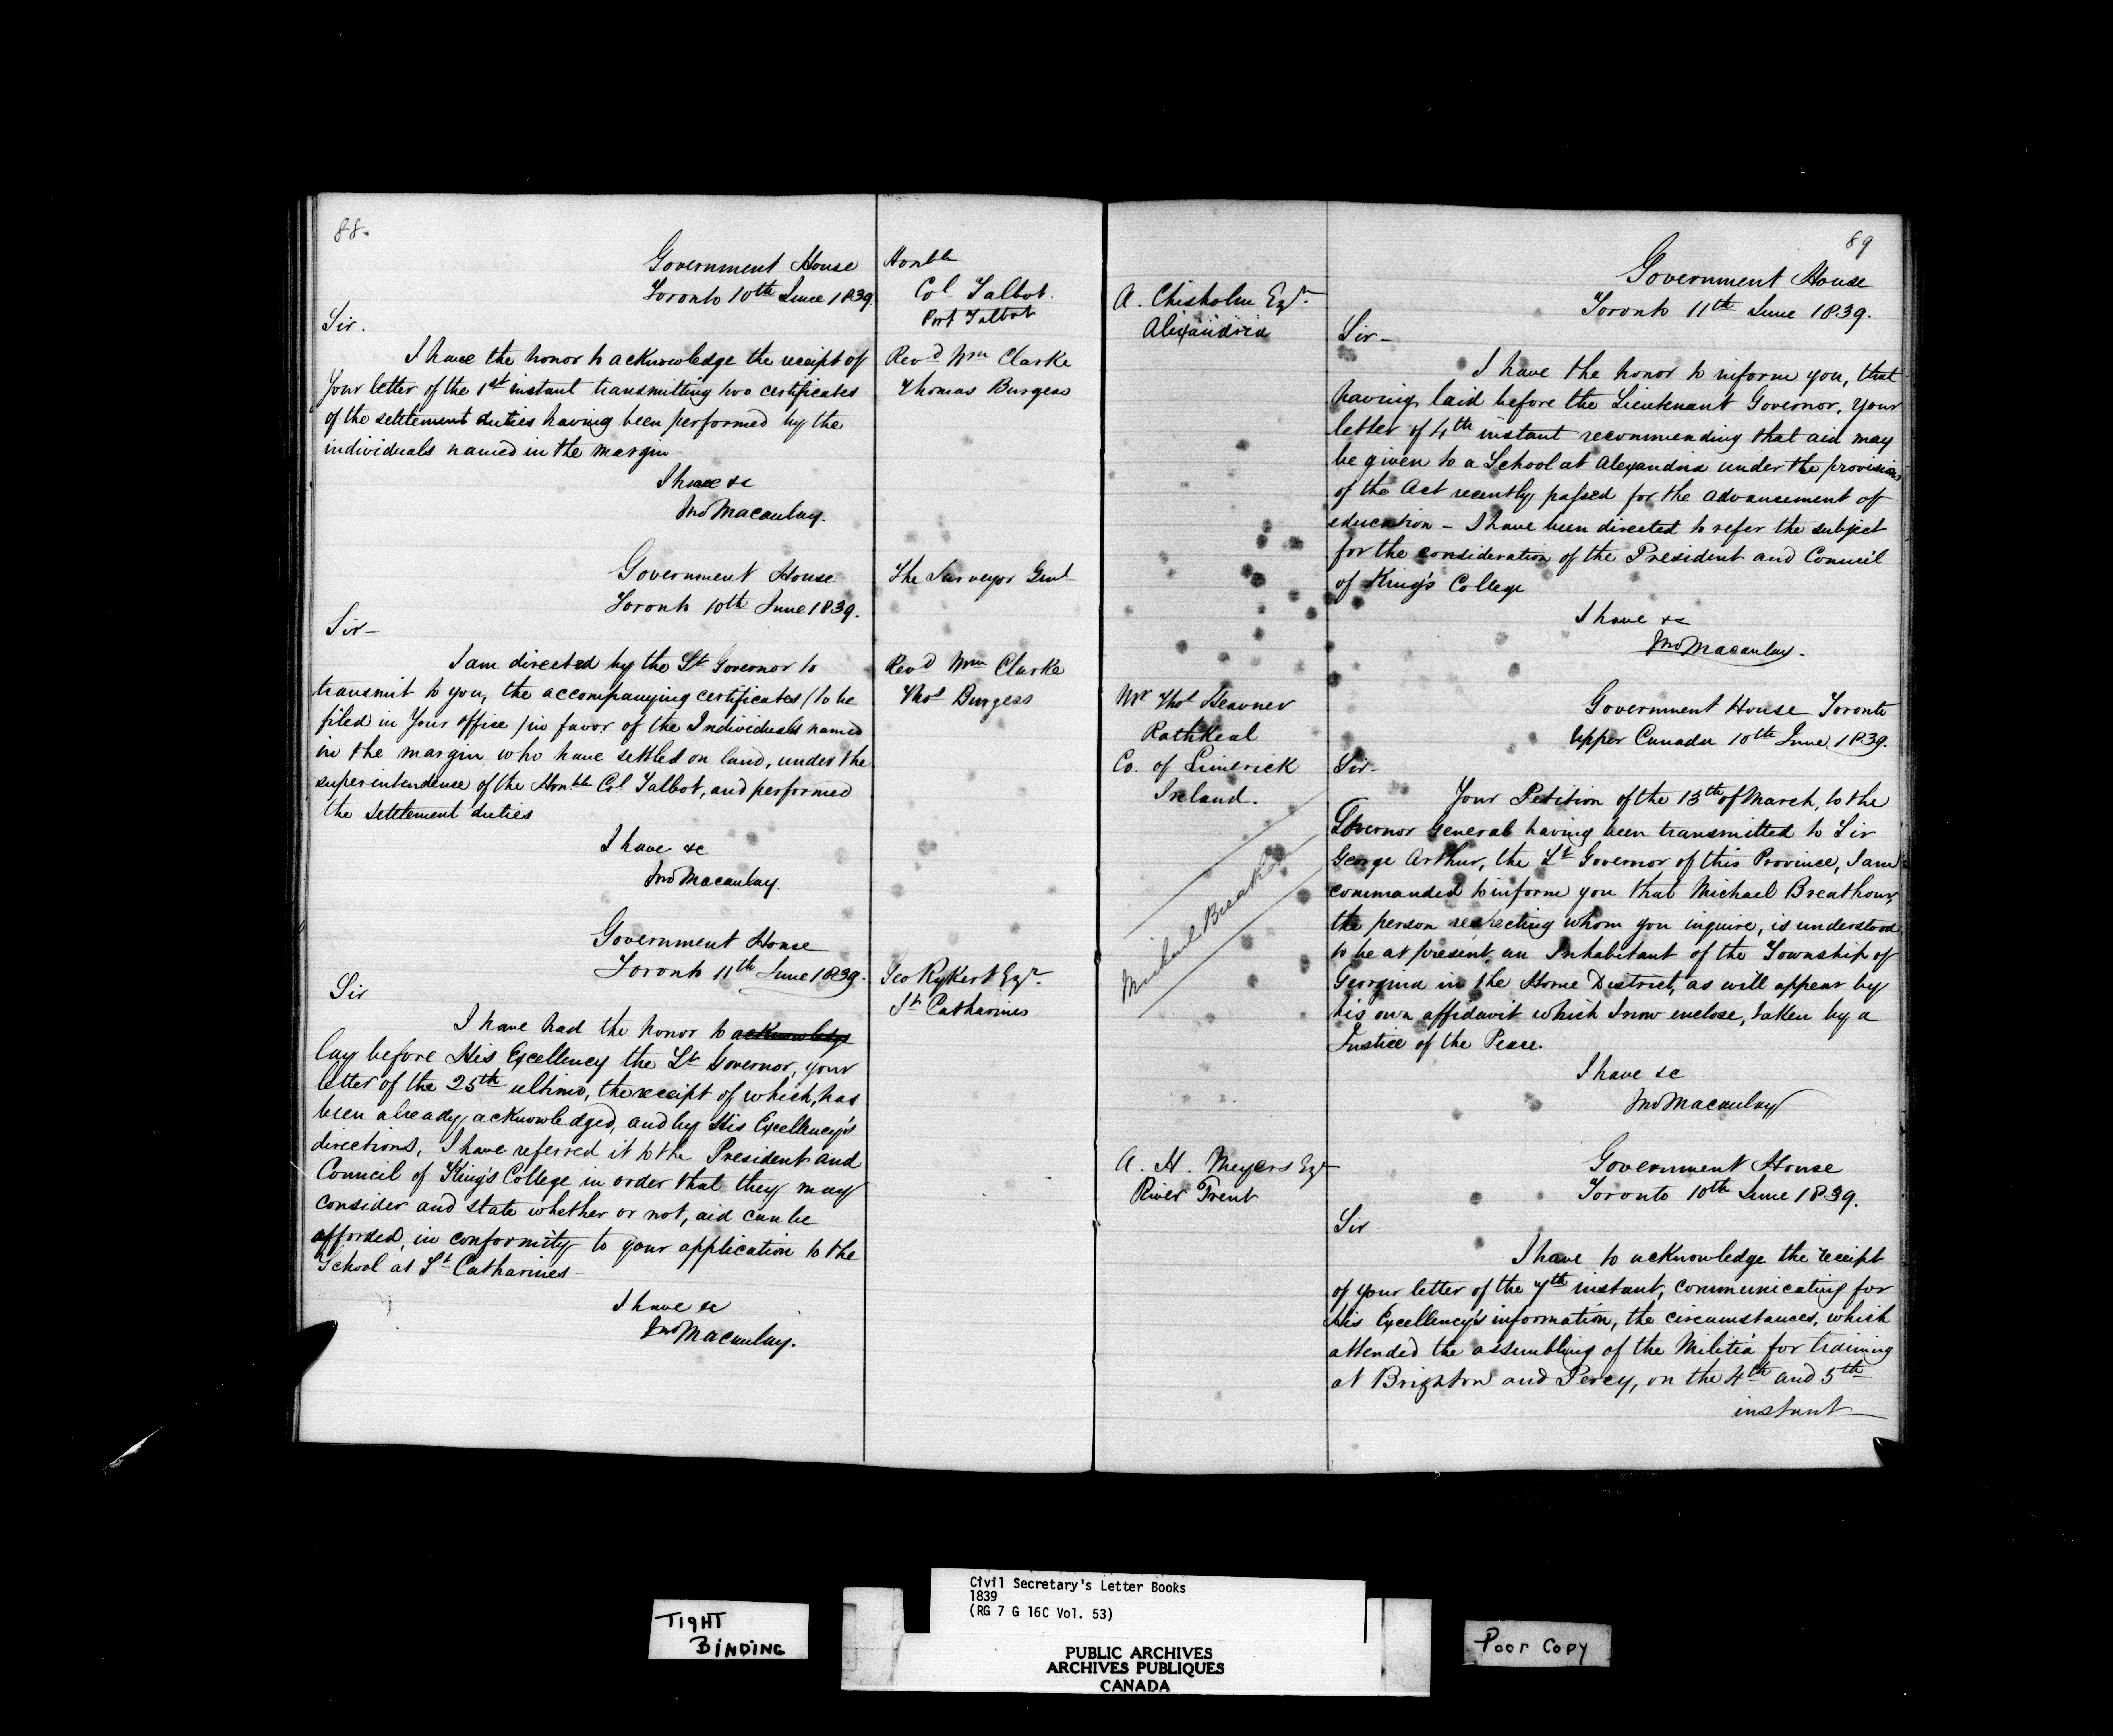 88.
Government House
Toronto 10th June 1839.
Honble
Col Talbot.
Port Talbot
Sir.
I have the honor to acknowledge the receipt of
Your letter of the 1st instant transmitting two certificates
of the settlement duties having been performed by the
individuals named in the margin
Revd Wm Clarke
Thomas Burgess
I have &c
Jno Macaulay.
Government House
Toronto 10th June 1839.
The Surveyor Genl
Sir-
I am directed by the Lt Governor to
transmit to you, the accompanying certificates (to be
filed in Your office) in favor of the Individuals named
in the margin who have settled on land, under the
superintendence of the Honble Col Talbot, and performed
the settlement duties
Revd Wm Clarke
Thos Burgess
I have &c
Jno Macaulay.
Government House
Toronto 11th June 1839.
Geo Rykert Esqr.
St Catharines
Sir
I have had the honor to acknowledge
lay before His Excellency the Lt Governor, your
letter of the 25th ultimo, the receipt of which, has
been already acknowledged, and by His Excellency's
directions, I have referred it to the President and
Council of King's College in order that they may
consider and state whether or not, aid can be
afforded, in conformity to your application to the
School at St Catharines-
I have &c
Jno Macaulay.
89
Government House
Toronto 11th June 1839.
A. Chisholm Esqr.
Alexandria
Sir-
I have the honor to inform you, that
having laid before the Lieutenant Governor, your
letter of 4th instant recommending that aid may
be given to a School at Alexandria under the provisions
of the Act recently passed for the advancement of
education - I have been directed to refer the subject
for the consideration of the President and Council
of King's College
I have &c
Jno Macaulay.
Government House Toronto
Upper Canada 10th June 1839.
Mr Thos Heavner
Rathkeal
Co. of Limerick
Ireland.
Michael Breathour
Sir-
Your Petition of the 13th of March, to the
Governor General having been transmitted to Sir
George Arthur, the Lt Governor of this Province, I am
commanded to inform you that Michael Breathour,
the person respecting whom you inquire, is understood
to be at present an Inhabitant of the Township of
Georgina in the Home District, as will appear by
his own affidavit which I now enclose, taken by a
Justice of the Peace.
I have &c
Jno Macaulay
Government House
Toronto 10th June 1839.
A. H. Meyers Esqr
River Trent
Sir
I have to acknowledge the receipt
of your letter of the 7th instant, communicating for
His Excellency's information, the circumstances, which
attended the assembling of the Militia for training
at Brighton and Percy, on the 4th and 5th
instant
TIGHT
BINDING
Civil Secretary's Letter Books
1839
(RG 7 G 16C Vol. 53)
PUBLIC ARCHIVES
ARCHIVES PUBLIQUES
CANADA
Poor Copy